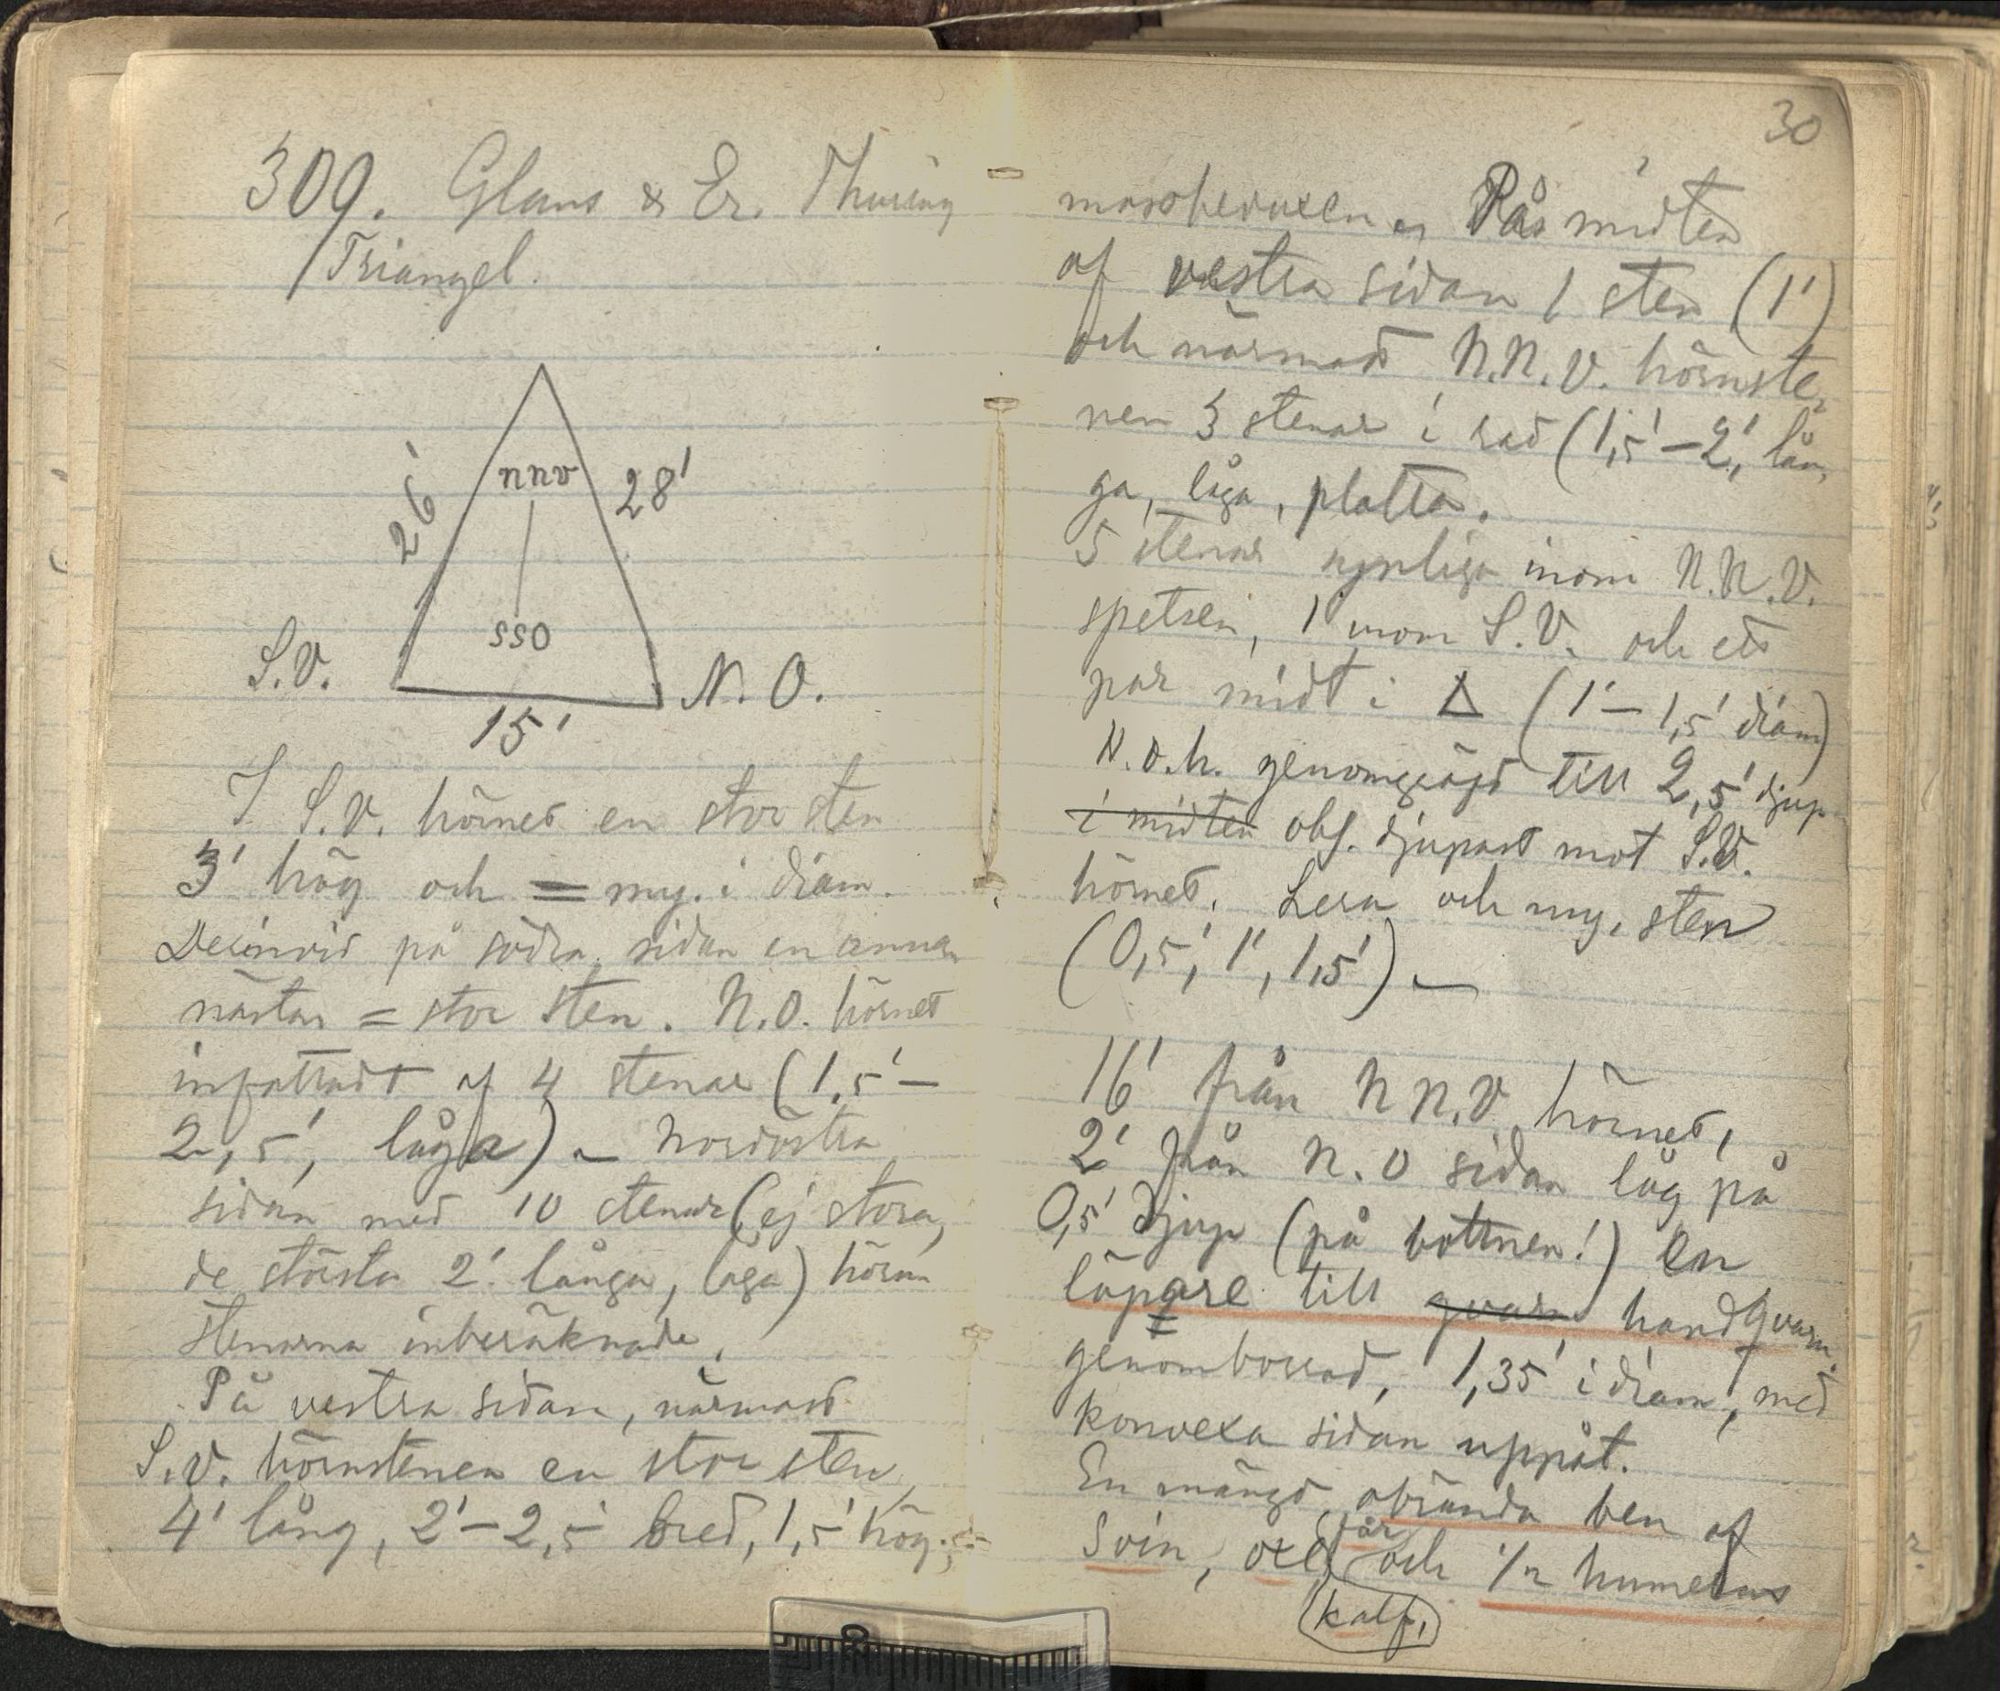 309. Glans & Er. Thuring
Triangel.
nnv
26'
28'
SSO
S.V.
N.O.
15'
I S.V. hörnet en stor sten
3' hög och = my. i diam.
Deinvid på södra sidan en annan
nästan = stor sten. N.O. hörnet
infattadt af 4 stenar (1,5'–
2,5', låga) – Nordöstra
sidan med 10 stenar (ej stora,
de största 2'. långa, låga) hörn
stenarna inberäknade.
På vestra sidan, närmast
S.V. hörnstenen en stor sten,
4' lång, 2'–2,5' bred, 1,5' hög,
30
På midten
af vestra sidan 1 sten (1')
och närmast N.N.V. hörnste
nen 3 stenar i rad (1,5'–2', lån
ga, låga, platta.
5 stenar synliga inom N.N.V.
spetsen, 1 inom S.V. och ett
par midt i Δ (1'–1,5' diam)
N.o.h. genomgrägd till 2,5' djup
i midten obs. djupast mot S.V.
hörnet. Lera och my. sten
(0,5', 1', 1,5') –
16' från N N.V hörnet,
2' från N.O sidan låg på
0,5' djup (på bottnen!) en
löpare till qvarn handqvarn,
genomborrad, 1,35' i diam, med
konvexa sidan uppåt.
En mängd obrända ben af
Svin, oxe, får och 1/2 humerus
kalf.